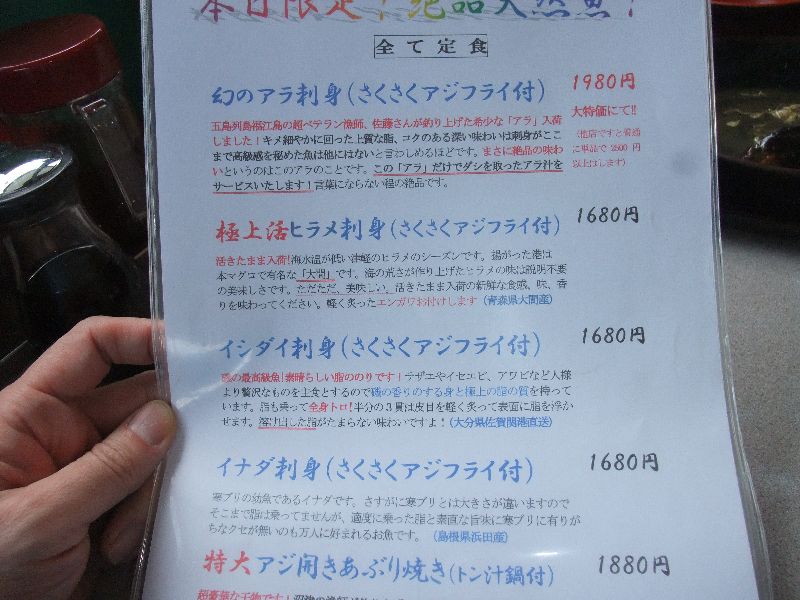 本日限定！絶品天然魚！
全て定食
幻のアラ刺身(さくさくアジフライ付) 1980円
大特価にて!!
(他店ですと普通に単品で 2500 円以上はします)
五島列島福江島の超ベテラン漁師、佐藤さんが釣り上げた希少な「アラ」入荷
しました！キメ細やかに回った上質な脂、コクのある深い味わいは刺身がここ
まで高級感を秘めた魚は他にはないと言わしめるほどです。まさに絶品の味わ
いというのはこのアラのことです。この「アラ」だけでダシを取ったアラ汁を
サービスいたします！言葉にならない程の絶品です。
極上活ヒラメ刺身(さくさくアジフライ付) 1680円
活きたまま入荷!海水温が低い津軽のヒラメのシーズンです。揚がった港は
本マグロで有名な「大間」です。海の荒さが作り上げたヒラメの味は説明不要
の美味しさです。ただただ、美味しい、活きたまま入荷の新鮮な食感、味、香
りを味わってください。軽く炙ったエンガワお付けします（青森県大間産）
イシダイ刺身(さくさくアジフライ付) 1680円
磯の最高級魚!素晴らしい脂ののりです！サザエやイセエビ、アワビなど人様
より贅沢なものを主食とするので磯の香りのする身と極上の脂の質を持って
います。脂も乗って全身トロ!半分の３貫は皮目を軽く炙って表面に脂を浮か
せます。溶け出した脂がたまらない味わいですよ！（大分県佐賀関港直送）
イナダ刺身(さくさくアジフライ付) 1680円
寒ブリの幼魚であるイナダです。さすがに寒ブリとは大きさが違いますので
そこまで脂は乗ってませんが、適度に乗った脂と素直な旨味に寒ブリに有りが
ちなクセが無いのも万人に好まれるお魚です。（島根県浜田産）
特大アジ開きあぶり焼き(トン汁鍋付) 1880円
超豪華な干物です！